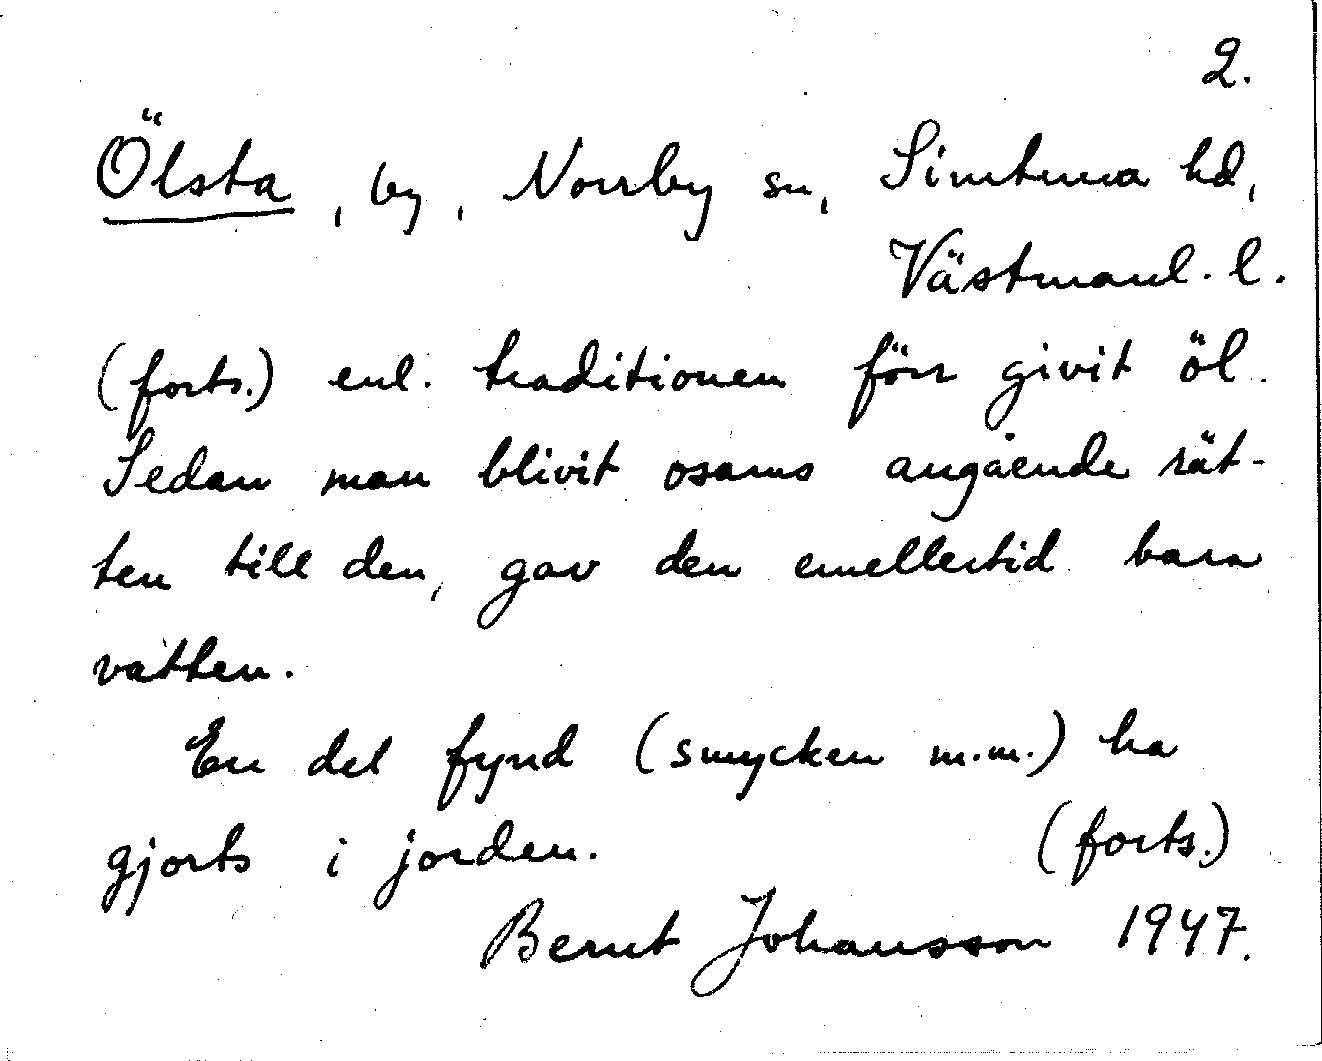 2.
Ölsta, by, Norrby sn, Simtuna hd,
Västmanl. l.
(forts.) enl. traditionen förr givit öl.
Sedan man blivit osams angående rät-
ten till den, gav den emellertid bara
vatten.
En del fynd (smycken m.m.) ha
gjorts i jorden. (forts.)
Bernt Johansson 1947.